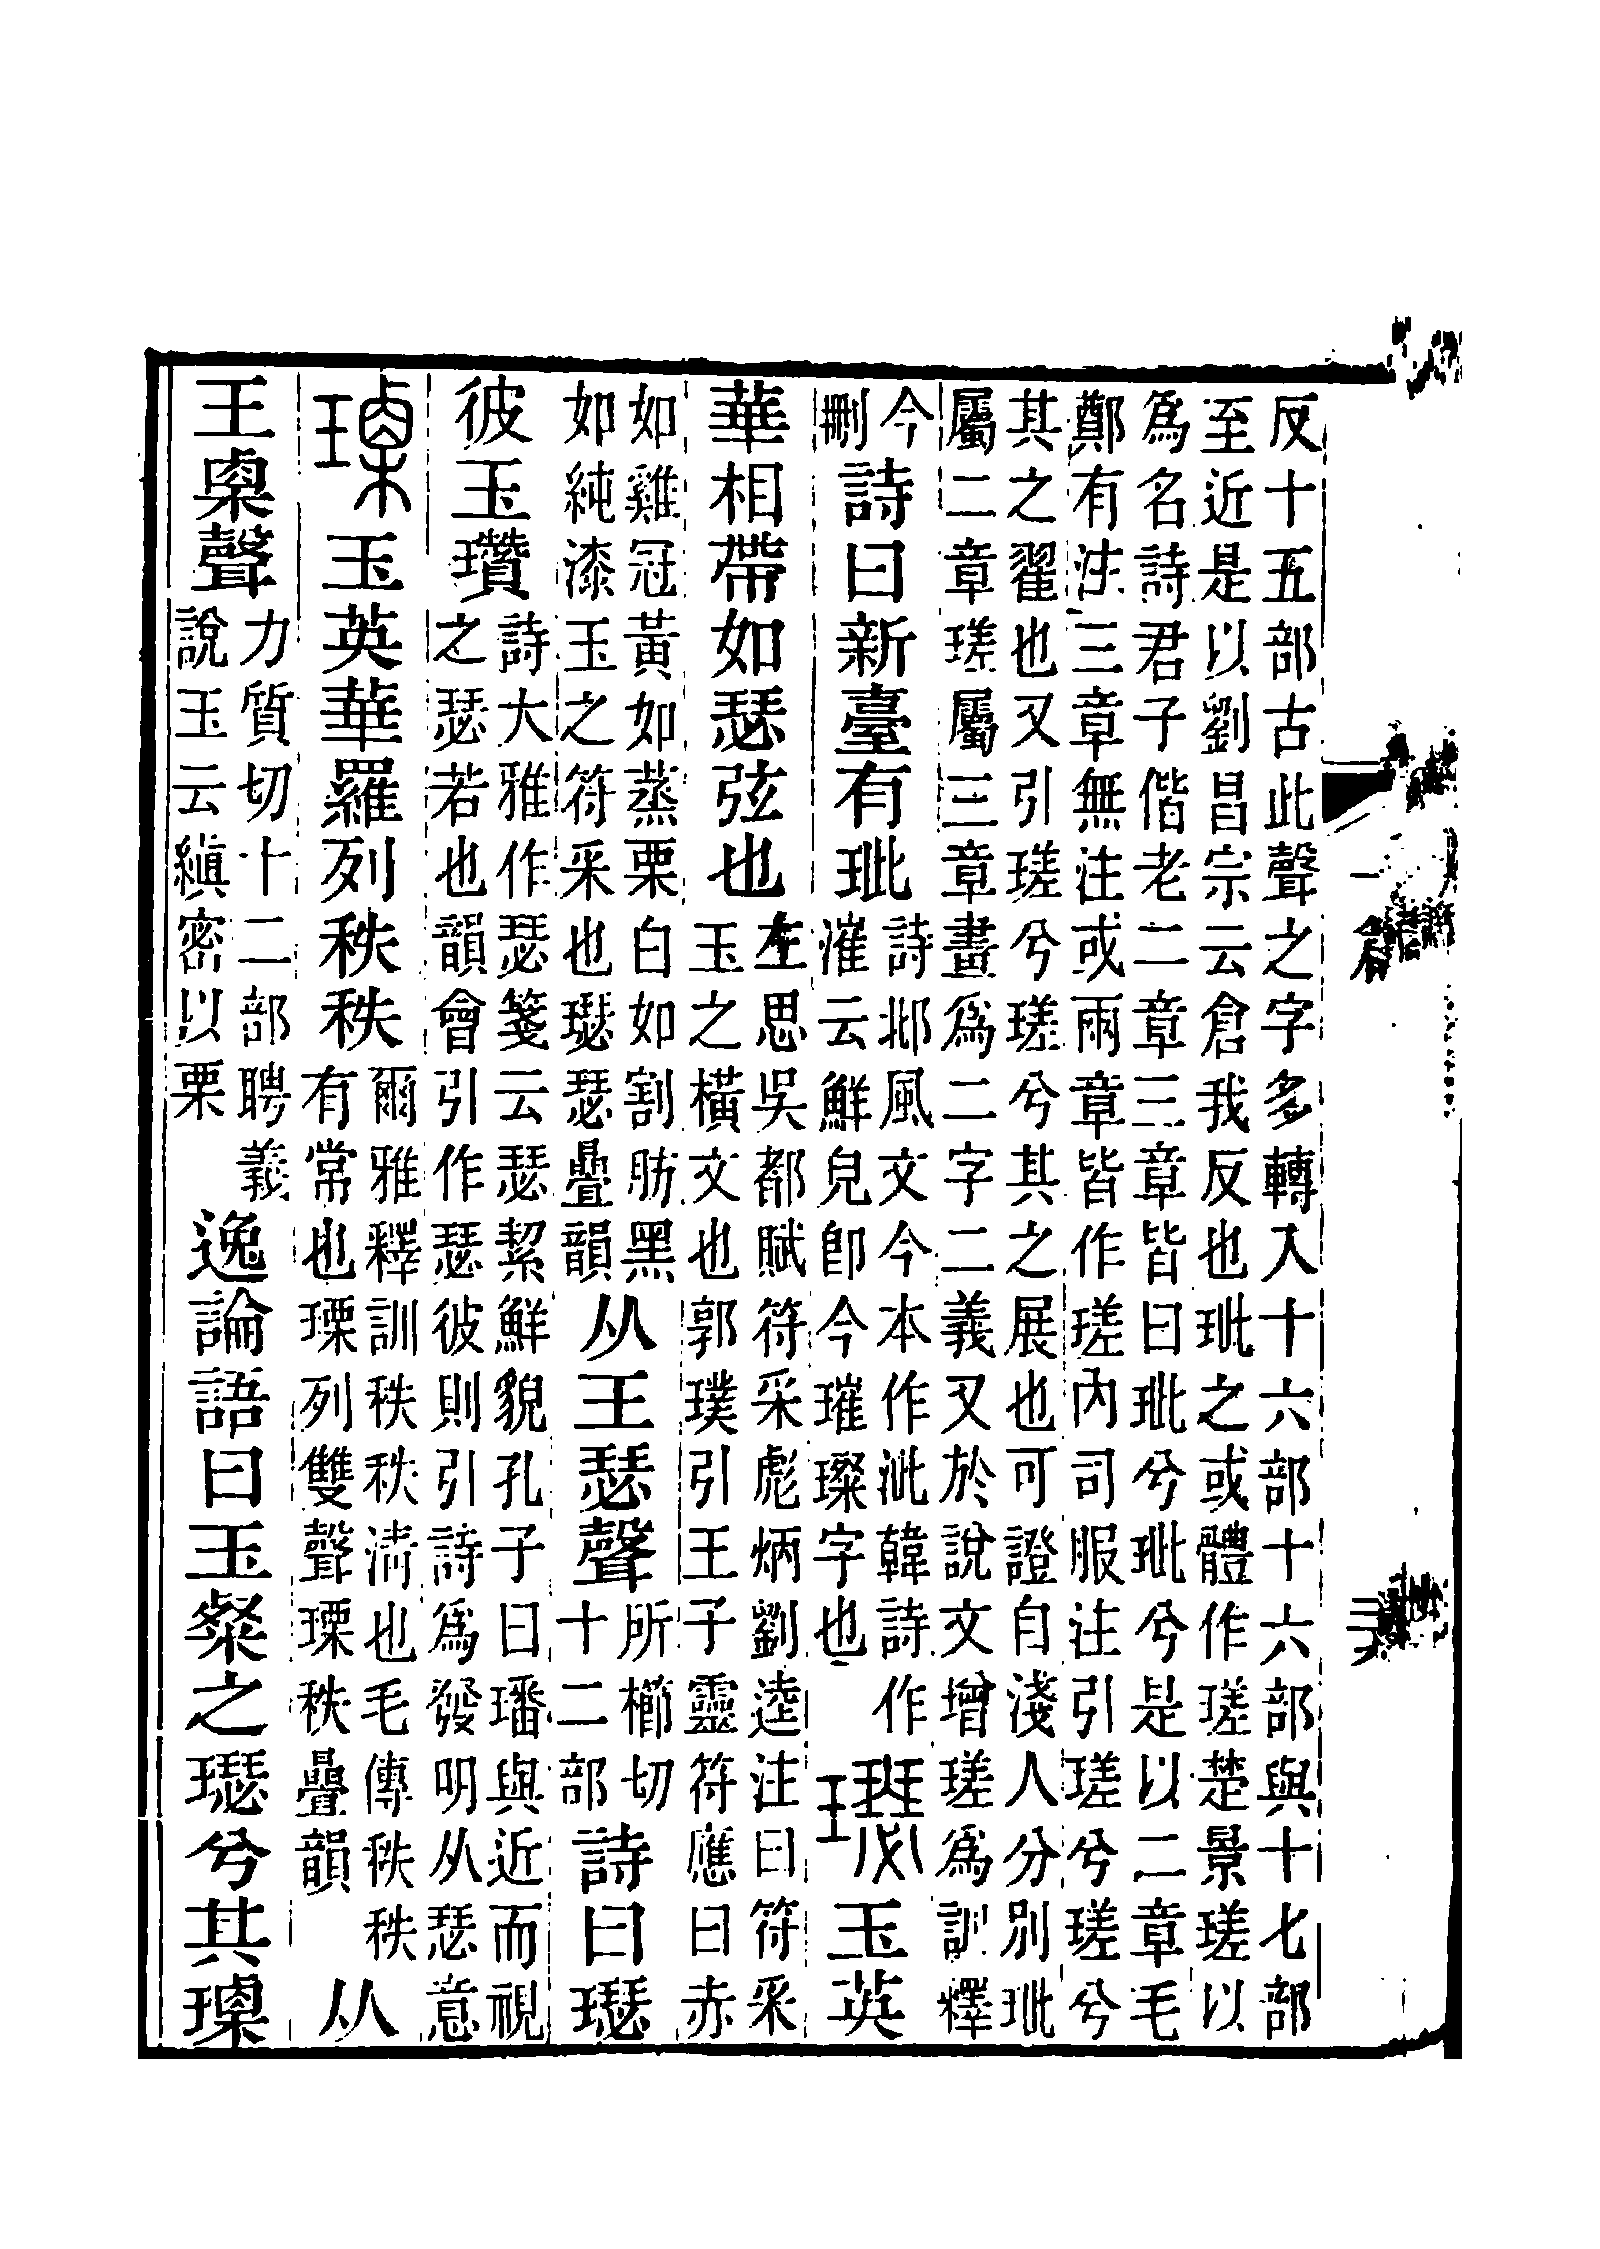 反十五部古此聲之字多轉入十六部十六部與十七部
至近是以劉昌宗云倉我反也玼之或體作瑳楚景瑳以
爲名詩君子偕老二章三章皆曰玼兮玼兮是以二章毛
鄭有注三章無注或兩章皆作瑳內司服注引瑳兮瑳兮
其之翟也又引瑳兮瑳兮其之展也可證自淺人分別玼
屬二章瑳屬三章畫爲二字二義又於說文增瑳爲訓釋
今刪詩曰新臺有玼詩邶風文今本作泚韓詩作漼云鮮皃卽今璀璨字也璱玉英
華相帶如瑟弦也左思吳都賦符采彪炳劉逵注曰符采玉之橫文也郭璞引王子靈符應曰赤
如雞冠黃如蒸栗白如割肪黑如純漆玉之符采也璱瑟疊韻从王瑟聲所櫛切十二部詩曰璱
彼玉瓚詩大雅作瑟箋云瑟絜鮮貌孔子曰璠與近而視之瑟若也韻會引作瑟彼則引詩爲發明从瑟意
瑮玉英華羅列秩秩爾雅釋訓秩秩清也毛傳秩秩有常也瑮列雙聲瑮秩疊韻从
王㮚聲力質切十二部聘義說玉云縝密以栗逸論語曰玉粲之璱兮其瑮